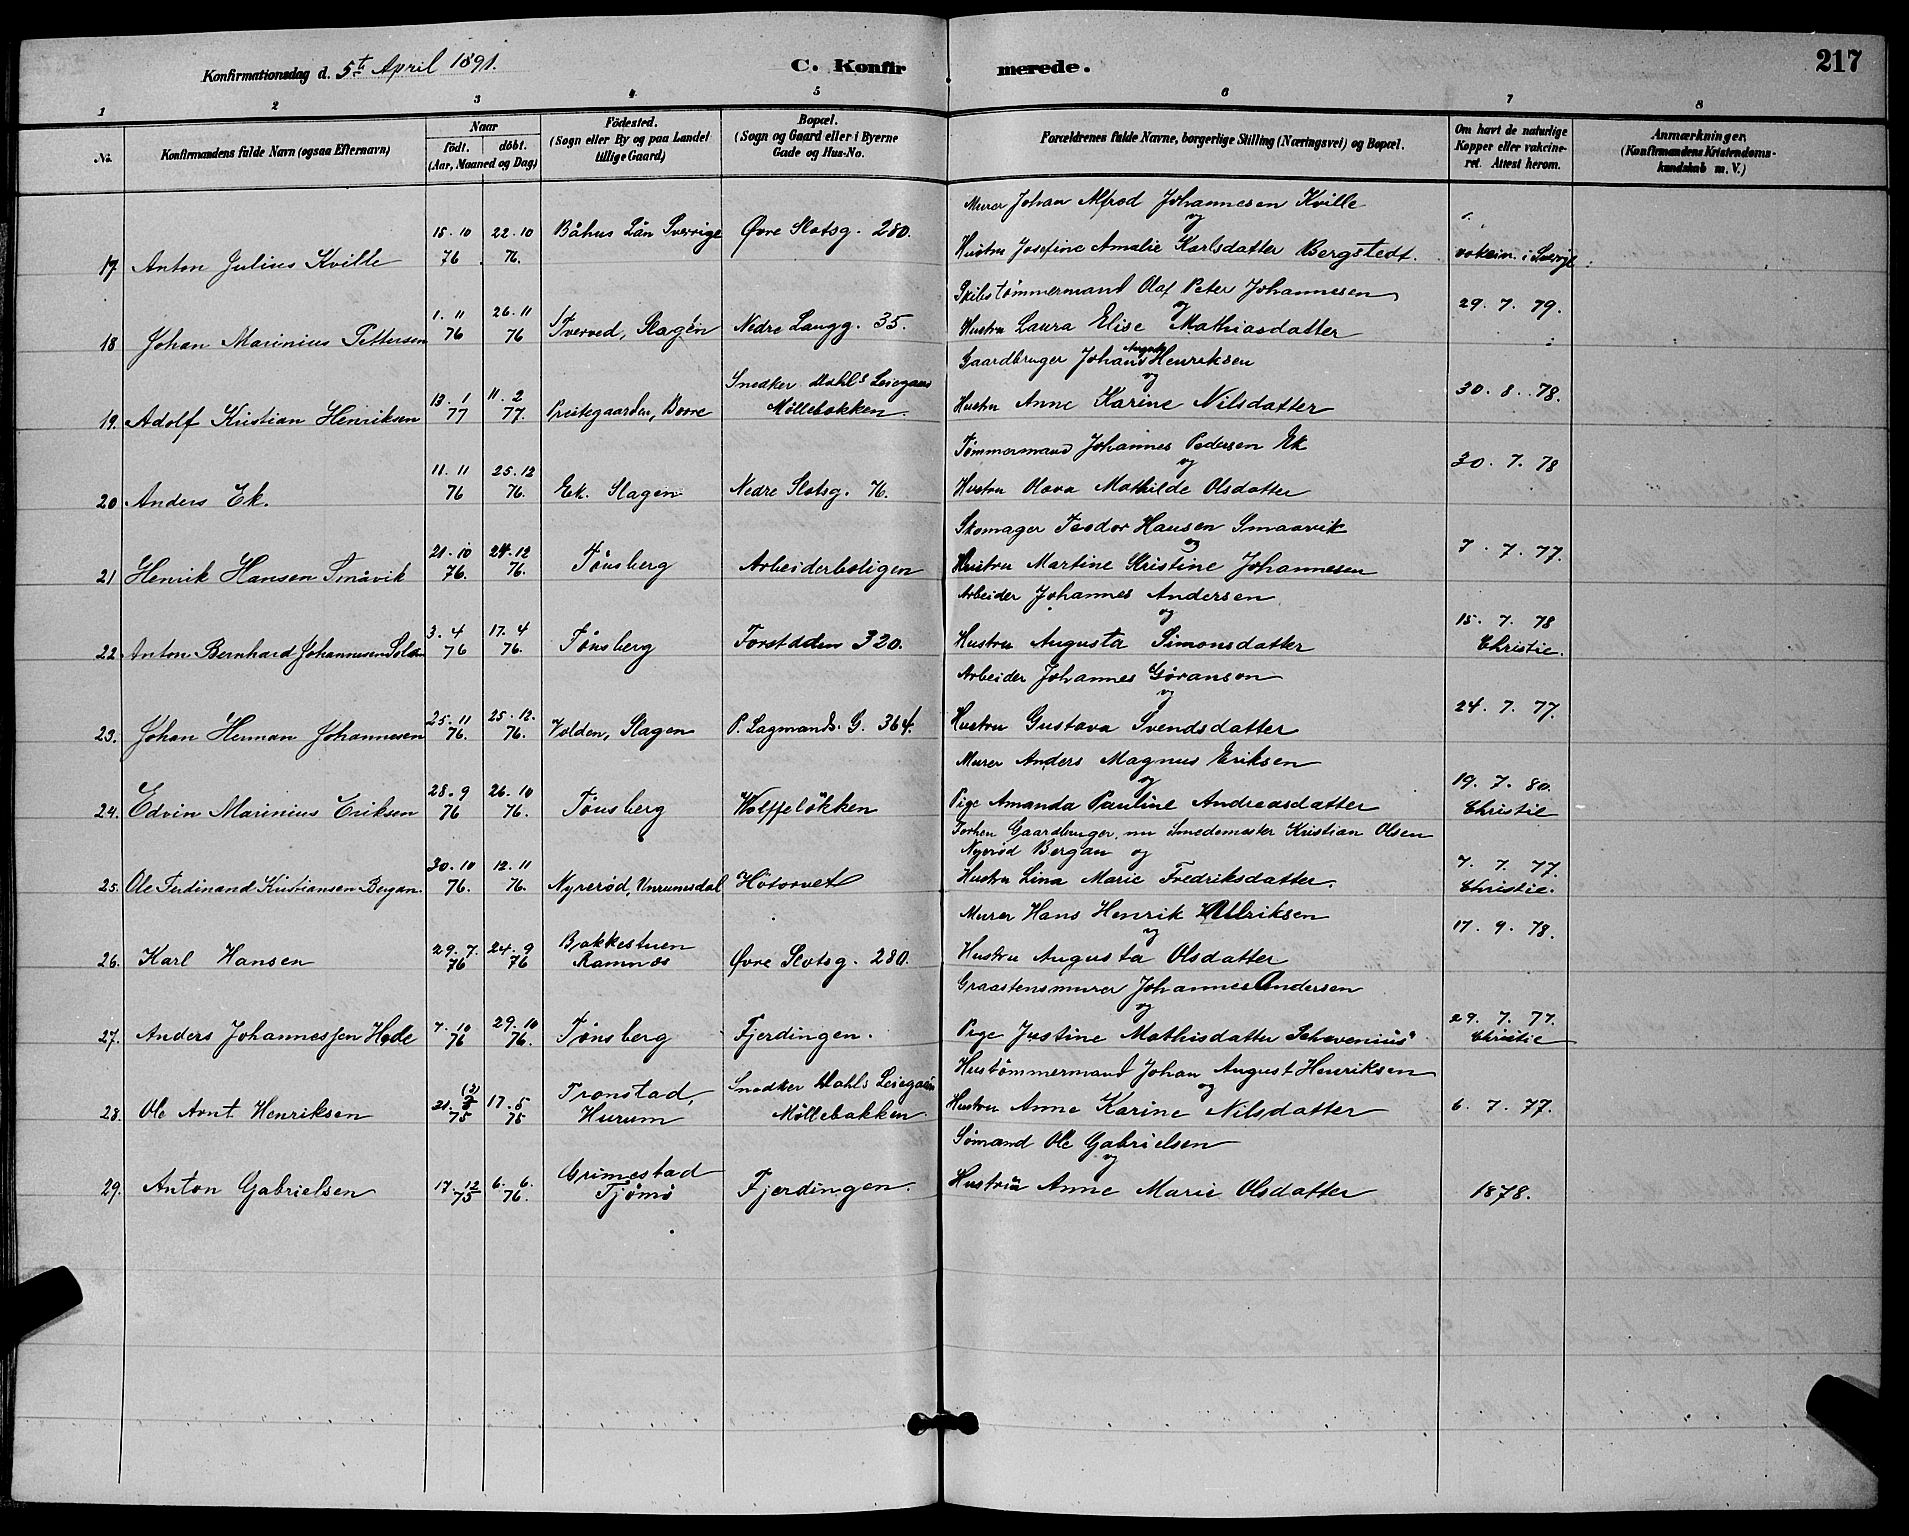 Konfirmationsdag d. 5te April 1891.
C. Konfirmerede.
217
1 2 3 4 5 6 7 8
No.
Konfirmandens fulde Navn (ogsaa Efternavn)
Naar
født. døbt.
(Aar, Maaned og Dag)
Fødested.
(Sogn eller By og paa Landet
tillige Gaard)
Bopæl.
(Sogn og Gaard eller i Byerne
Gade og Hus-No.
Forældrenes fulde Navne, borgerlige Stilling (Næringsvei) og Bopæl.
Om havt de naturlige
Kopper eller vakcine-
ret. Attest herom.
Anmærkninger.
(Konfirmandens Kristendoms-
kundskab m. V.)
Murer Johan Alfred Johannesen Kville
og
15. 10 22. 10 Båhus Län Sverrige Øvre Slotsg. 280.
17 Anton Julius Kville 76 76. Hustru Josefine Amalie Karlsdatter Bergstedt. vakcin. i Sverige
Skibstømmermand Olaf Peter Johannesen
og
1. 11 26. 11 29. 7. 79.
18 Johan Marinius Pettersen 76 76 Tverved, Slagen Nedre Langg. 35. Hustru Laura Elise Mathiasdatter
Gaardbruger Johan August Henriksen
og
13. 1 11. 2 Snedker Dahls Leiegaard 30. 8. 78.
19. Adolf Kristian Henriksen 77 77. Prestegaarden, Borre Møllebakken. Hustru Anne Karine Nilsdatter
Tømmermand Johannes Pedersen Ek
og
11. 11 25. 12 30. 7. 78
20 Anders Ek. 76 76. Ek. Slagen Nedre Slotsg. 76. Hustru Olava Mathilde Olsdatter
Skomager Teodor Hansen Smaavik
og
21. 10 24. 12 7. 7. 77.
21 Henrik Hansen Småvik 76. 76. Tønsberg Arbeiderboligen Hustru Martine Kristine Johannesen
Arbeider Johannes Andersen
og
3. 4 17. 4 15. 7. 78
22. Anton Bernhard Johannesen 76 76. Tønsberg Forstaden 320. Hustru Augusta Simonsdatter Christie.
Arbeider Johannes Göranson
og
25. 11 25. 12. 24. 7. 77.
23. Johan Herman Johannesen 76. 76. Volden, Slagen P. Lagmands. G. 364. Hustru Gustava Svendsdatter
Murer Anders Magnus Eriksen
og
28. 9 26. 10 19. 7. 80.
24. Edvin Marinius Eriksen 76 76. Tønsberg Wolffeløkken Pige Amanda Pauline Andreasdatter Christie
Forhen Gaardbruger, nu Smedemester Kristian Olsen
Nyerød Bergan og
30. 10 12. 11 7. 7. 77.
25. Ole Ferdinand Kristiansen Bergan. 76. 76. Nyrerød, Unrumsdal Høtorvet Hustru Lina Marie Fredriksdatter. Christie.
Murer Hans Henrik Ulriksen
og
17. 9. 78.
26. Karl Hansen 29. 7. 76 24. 9 76 Bakkestuen Ramnæs Øvre Slotsg. 280. Hustru Augusta Olsdatter
Graastensmurer Johannes Andersen
og
7. 10 29. 10 29. 7. 77.
27. Anders Johannessen Hede 76 76. Tønsberg Fjerdingen. Pige Justine Mathisdatter Schevenius Christie
Hustømmermand Johan August Henriksen
og
Tronstad, Snedker Dahls Leiegaard
28. Ole Arnt Henriksen 21. 75 17. 5 75 Hurum Møllebakken Hustru Anne Karine Nilsdatter 6. 7. 77.
Sømand Ole Gabrielsen
og
29. Anton Gabrielsen 17. 12 75 6. 6. 76. Grimestad Tjømø Fjerdingen. Hustru Anne Marie Olsdatter 1878.